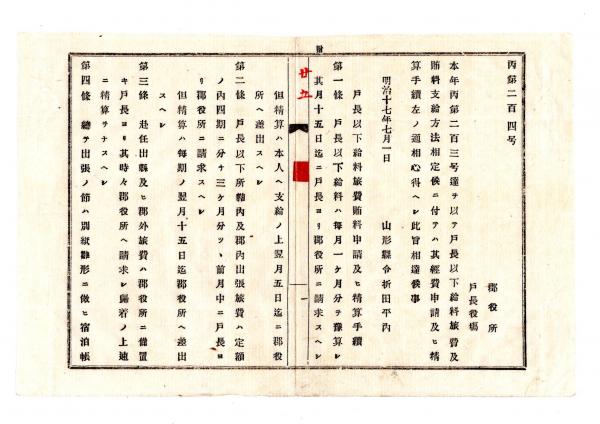 丙第二百四号
郡役所
戸長役場
本年丙第二百三号達ヲ以テ戸長以下給料旅費及
賄料支給方法相定候ニ付テハ其経費申請及ヒ精
算手續左ノ通相心得ヘシ此旨相達候事
明治十七年七月一日
山形縣令折田平內
戸長以下給料旅費賄料申請及ヒ精算手續
第一條 戸長以下給料ハ毎月一ケ月分ヲ豫算シ
其月十五日迄ニ戸長ヨリ郡役所ニ請求スヘシ
廿五
一
但精算ハ本人ヘ支給ノ上翌月五日迄ニ郡役
所ヘ差出スヘシ
第二條 戸長以下所轄內及郡內出張旅費ハ定額
ノ內四期ニ分チ三ケ月分ツヽ前月中ニ戸長ヨ
リ郡役所ニ請求スヘシ
但精算ハ毎期ノ翌月十五日迄郡役所ヘ差出
スヘシ
第三條 赴任出縣及ヒ郡外旅費ハ郡役所ニ備置
キ戸長ヨリ其時々郡役所ヘ請求シ歸着ノ上速
ニ精算ヲナスヘシ
第四條 總テ出張ノ節ハ別紙雛形ニ做ヒ宿泊帳